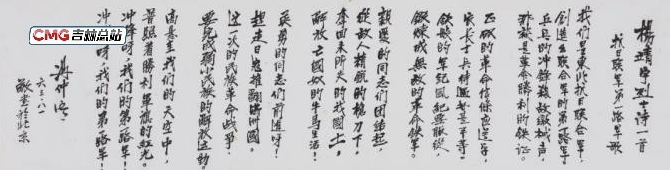 杨靖宇烈士诗一首
抗日联军第一路军歌
我们是东北抗日联合军，
创造出联合军的第一路军。
乒乓的冲锋杀敌缴械声，
那就是革命胜利的铁证。
正确的革命信条应遵守，
官长士兵待遇都是平等。
铁般的军纪风纪要服从，
锻炼成无敌的革命铁军。
亲爱的同志们团结起，
从敌人精锐的枪刀下，
夺回来所失的我国土，
解放亡国奴的牛马生活！
英勇的同志们前进呀！
赶走日寇推翻满洲国。
这一次的民族革命战争，
要完成弱小民族的解放运动。
高悬在我们的天空中，
普照着胜利军旗的红光。
冲锋呀，我们的第一路军！
冲锋呀，我们的第一路军！
冯仲云
敬书于北京
CMG吉林总站